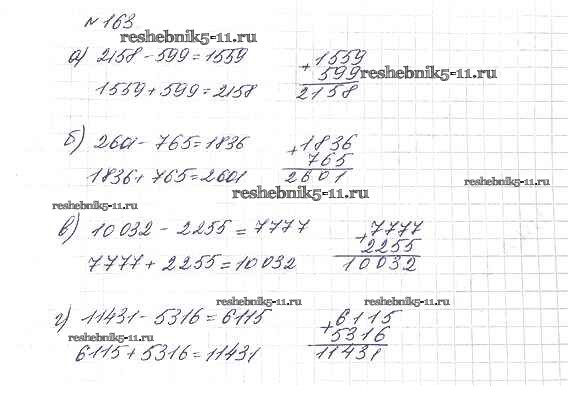 №163
reshebnik5-11.ru
а) 2158 - 599 = 1559
1559 + 599 = 2158
1559
+ 599
2158
reshebnik5-11.ru
б) 2601 - 765 = 1836
1836 + 765 = 2601
1836
+ 765
2601
reshebnik5-11.ru
reshebnik5-11.ru
reshebnik5-11.ru
в) 10032 - 2255 = 7777
7777 + 2255 = 10032
7777
+ 2255
10032
reshebnik5-11.ru
reshebnik5-11.ru
г) 11431 - 5316 = 6115
reshebnik5-11.ru
6115 + 5316 = 11431
6115
+ 5316
11431